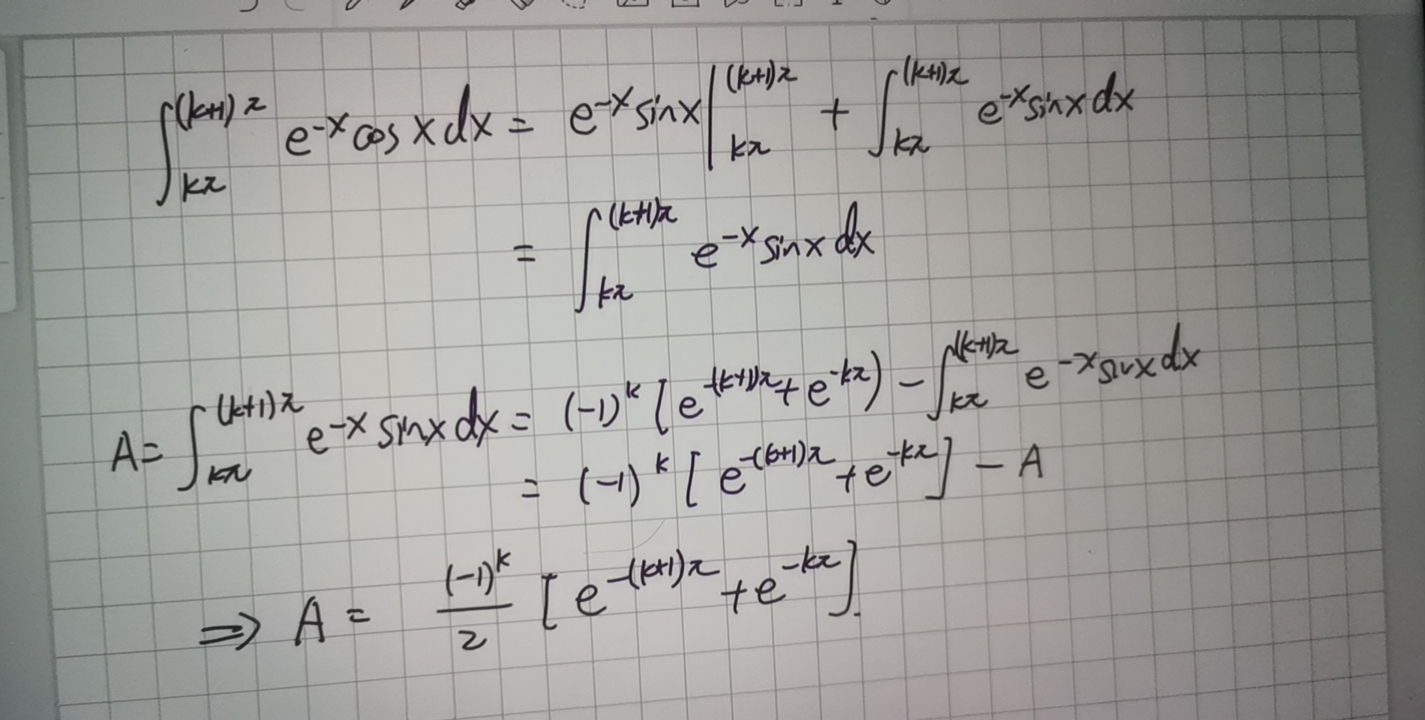 ∫_{kπ}^{(k+1)π} e^{-x} cos x dx = e^{-x} sin x |_{kπ}^{(k+1)π} + ∫_{kπ}^{(k+1)π} e^{-x} sin x dx
= ∫_{kπ}^{(k+1)π} e^{-x} sin x dx
A = ∫_{kπ}^{(k+1)π} e^{-x} sin x dx = (-1)^k [e^{-(k+1)π} + e^{-kπ}) - ∫_{kπ}^{(k+1)π} e^{-x} sin x dx
= (-1)^k [e^{-(k+1)π} + e^{-kπ}] - A
⇒ A = (-1)^k/2 [e^{-(k+1)π} + e^{-kπ}].